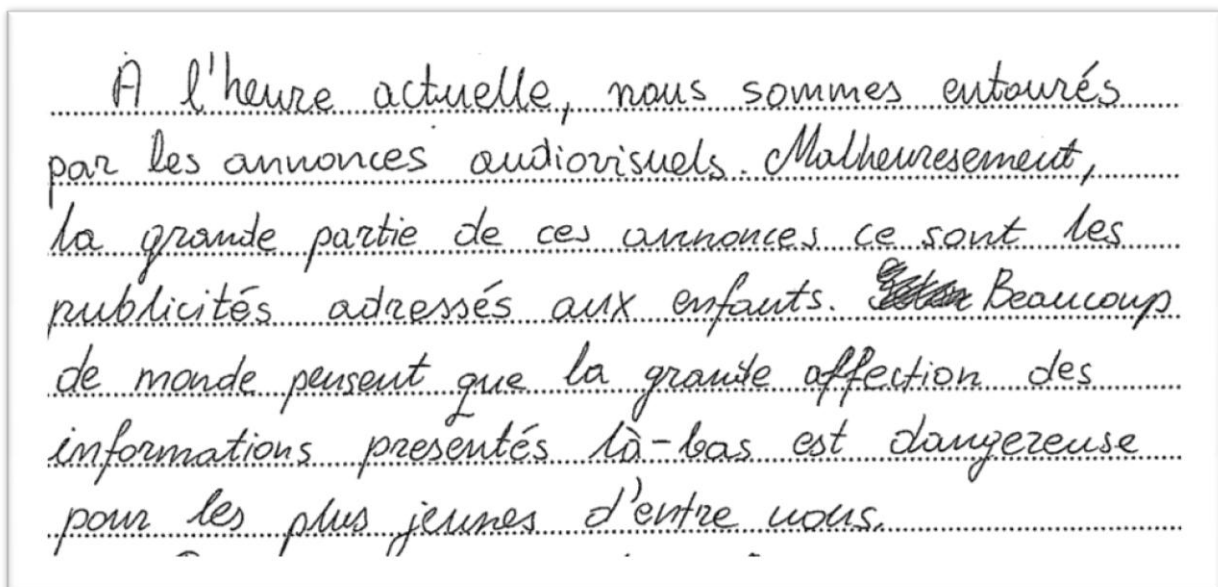 À l'heure actuelle, nous sommes entourés
par les annonces audiovisuels. Malheuresement,
la grande partie de ces annonces ce sont les
publicités adressés aux enfants. Beaucoup
de monde pensent que la grande affection des
informations presentés là-bas est dangereuse
pour les plus jeunes d'entre nous.